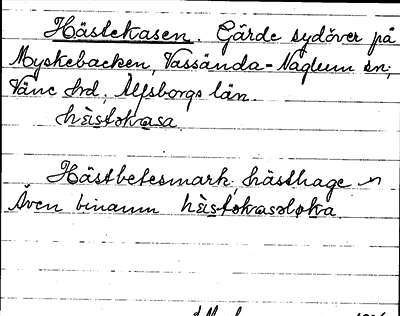 Hästekasen. Gärde sydöver på
Myskebacken, Vassända-Naglum sn,
Väne hd, Älfsborgs län.
hèstəkasa
Hästbetesmark, hästhage
Även binamn hèstəkasələkа